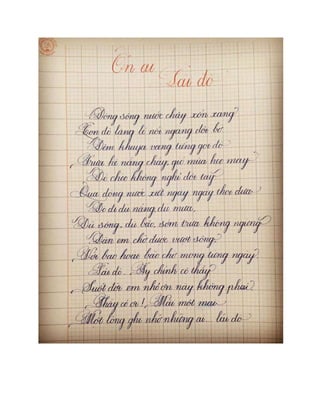 Ơn ai
Lái đò
Dòng sông nước chảy xốn xang
Con đò lặng lẽ nối ngang đôi bờ
Đêm khuya vang tiếng gọi đò
Trưa hè nắng cháy, gió mùa heo may
Đò chèo không nghỉ đôi tay
Qua dòng nước xiết ngày ngày thoi đưa
Đò đi dù nắng, dù mưa,
Dù sóng, dù bão, sớm trưa không ngừng
Đàn em chờ được vượt sông
Với bao hoài bão chờ mong từng ngày
Lái đò Ấy chính cô thầy
Suốt đời em nhớ ơn này không phai
Thầy cô ơi!, Mãi một mai
Một lòng ghi nhớ những ai... lái đò